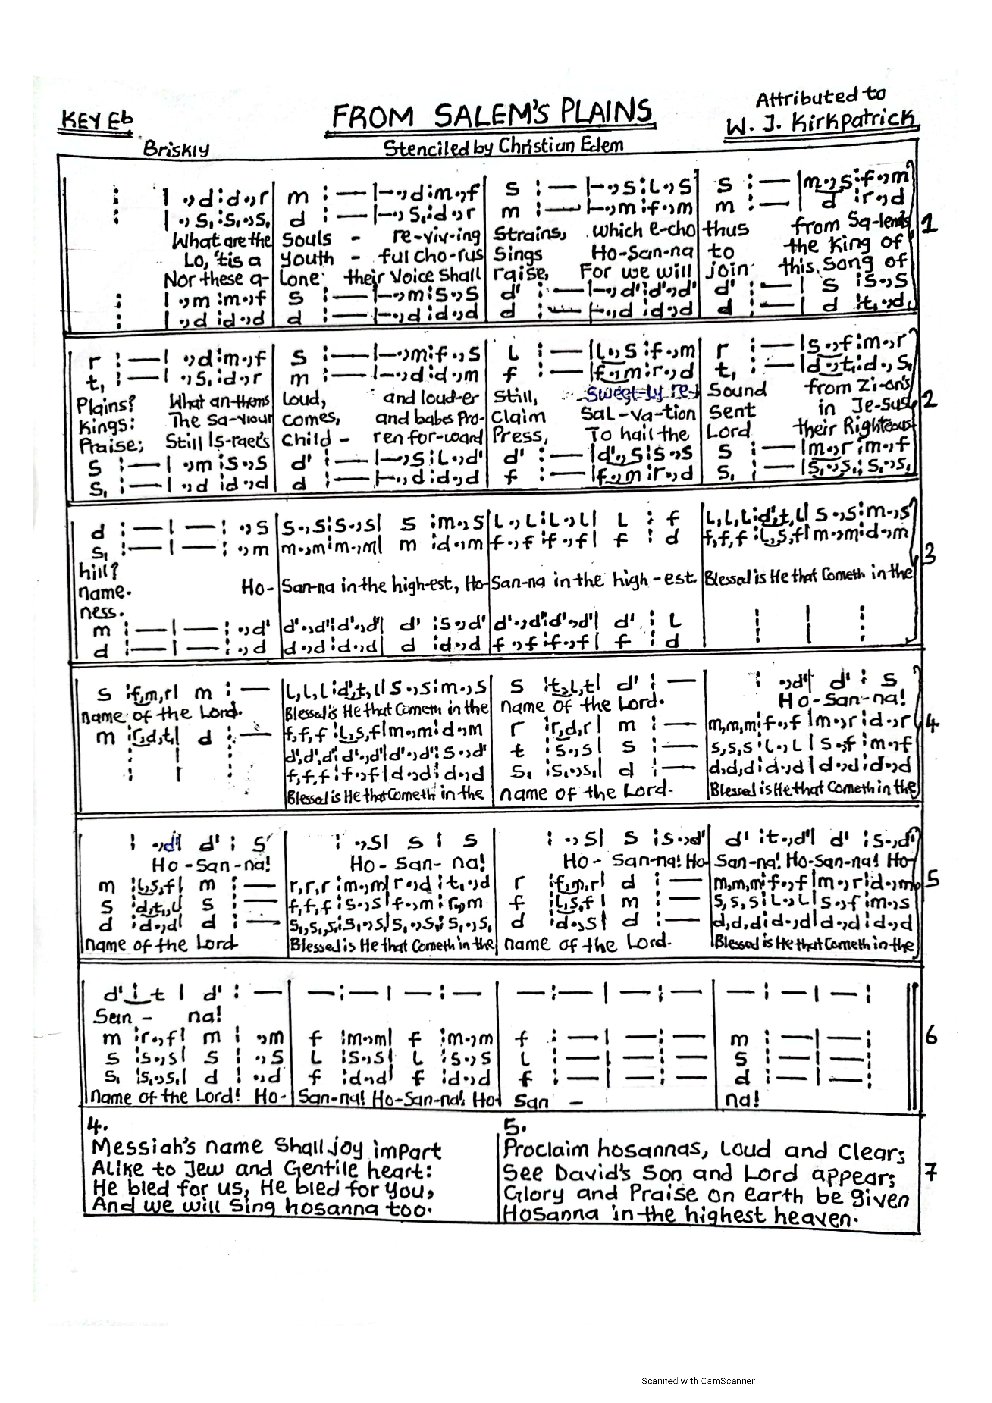 KEY Eb
FROM SALEM'S PLAINS
Attributed to
W. J. Kirkpatrick
Briskly
Stenciled by Christian Edem
: | .,d:d.,r | m :— |—.,d:m.,f | s :— |—.,s:l.,s | s :— |m.,s:f.,m
: | .,s,:s,.,s, | d :— |—.,s,:d.,r | m :— |—.,m:f.,m | m :— | d :r.,d
What are the Souls - re-viv-ing Strains, which e-cho thus from Sa-lem's 1
Lo, 'tis a youth - ful cho-rus Sings Ho-San-na to the King of
Nor these a- lone their Voice shall raise, For we will join this song of
: | .,m:m.,f | s :— |—.,m:s.,s | d' :— |—.,d':d'.,d' | d' :— | s :s.,s
: | .,d:d.,d | d :— |—.,d:d.,d | d :— |—.,d:d.,d | d :— | d :t,.,d
r :—| .,d:m.,f | s :— |—.,m:f.,s | l :— |l.,s:f.,m | r :— |s.,f:m.,r
t, :—| .,s,:d.,r | m :— |—.,d:d.,m | f :— |f.,m:r.,d | t, :— |d.,t,:d.,s,
Plains? What an-thems loud, and loud-er Still, Sweet-ly re- Sound from Zi-on's
Kings: The Sa-viour comes, and babes Pro- Claim Sal-va-tion Sent in Je-sus' 2
Praise; Still Is-rael's Child - ren for-ward Press, To hail the Lord their Righteous
s :—| .,m:s.,s | d' :— |—.,s:l.,d' | d' :— |d'.,s:s.,s | s :— |m.,r:m.,f
s, :—| .,d:d.,d | d :— |—.,d:d.,d | f :— |f.,m:r.,d | s, :— |s,.,s,:s,.,s,
d :—|—: .,s | s.,s:s.,s| s :m.,s | l.,l:l.,l| l : f | l,l,l:d',t,l| s.,s:m.,s
s, :—|—: .,m | m.,m:m.,m| m :d.,m | f.,f:f.,f| f : d | f,f,f:l,s,f| m.,m:d.,m
hill? 3
name. Ho- San-na in the high-est, Ho- San-na in the high-est. Blessed is He that Cometh in the
ness.
m :—|—: .,d' | d'.,d':d'.,d'| d' :s.,d' | d'.,d':d'.,d'| d' : l | : | :
d :—|—: .,d | d.,d:d.,d| d :d.,d | f.,f:f.,f| f : d | : | :
s :f,m,r| m :— | l,l,l:d',t,l| s.,s:m.,s | s :t,l,t| d' :— | : .,d'| d' : s
name of the Lord. Blessed is He that Cometh in the name of the Lord. Ho-San-na!
m :r,d,t,| d :— | f,f,f:l,s,f| m.,m:d.,m | r :r,d,r| m :— | m,m,m:f.,f| m.,r:d.,r 4
: | : | d',d',d':d'.,d'| d'.,d':s.,d' | t :s.,s| s :— | s,s,s:l.,l| s.,f:m.,f
: | : | f,f,f:f.,f| d.,d:d.,d | s, :s,.,s,| d :— | d,d,d:d.,d| d.,d:d.,d
Blessed is He that Cometh in the name of the Lord. Blessed is He that Cometh in the
: .,d'| d' : s | : .,s| s : s | : .,s| s :s.,d' | d' :t.,d'| d' :s.,d'
Ho-San-na! Ho-San-na! Ho-San-na! Ho- San-na! Ho-San-na! Ho-
m :l,s,f| m :— | r,r,r:m.,m| r.,d:t,.,d | r :f,m,r| d :— | m,m,m:f.,f| m.,r:d.,m 5
s :d',t,l| s :— | f,f,f:s.,s| f.,m:r.,m | f :l,s,f| m :— | s,s,s:l.,l| s.,f:m.,s
d :d.,d| d :— | s,,s,,s,:s,.,s,| s,.,s,:s,.,s, | d :d.,s| d :— | d,d,d:d.,d| d.,d:d.,d
name of the Lord. Blessed is He that Cometh in the name of the Lord. Blessed is He that Cometh in the
d' :t | d' :— | —:—|—:— | —:—|—:— | —:—|—:
San - na!
m :r.,f| m : .,m | f :m.,m| f :m.,m | f :—|—:— | m :—|—: 6
s :s.,s| s : .,s | l :s.,s| l :s.,s | l :—|—:— | s :—|—:
s, :s,.,s,| d : .,d | f :d.,d| f :d.,d | f :—|—:— | d :—|—:
name of the Lord! Ho- San-na! Ho-San-na! Ho- San - na!
4.
Messiah's name Shall joy impart
Alike to Jew and Gentile heart:
He bled for us, He bled for you,
And we will sing hosanna too.
5.
Proclaim hosannas, Loud and Clear;
See David's Son and Lord appear; 7
Glory and Praise on earth be given
Hosanna in the highest heaven.
Scanned with CamScanner